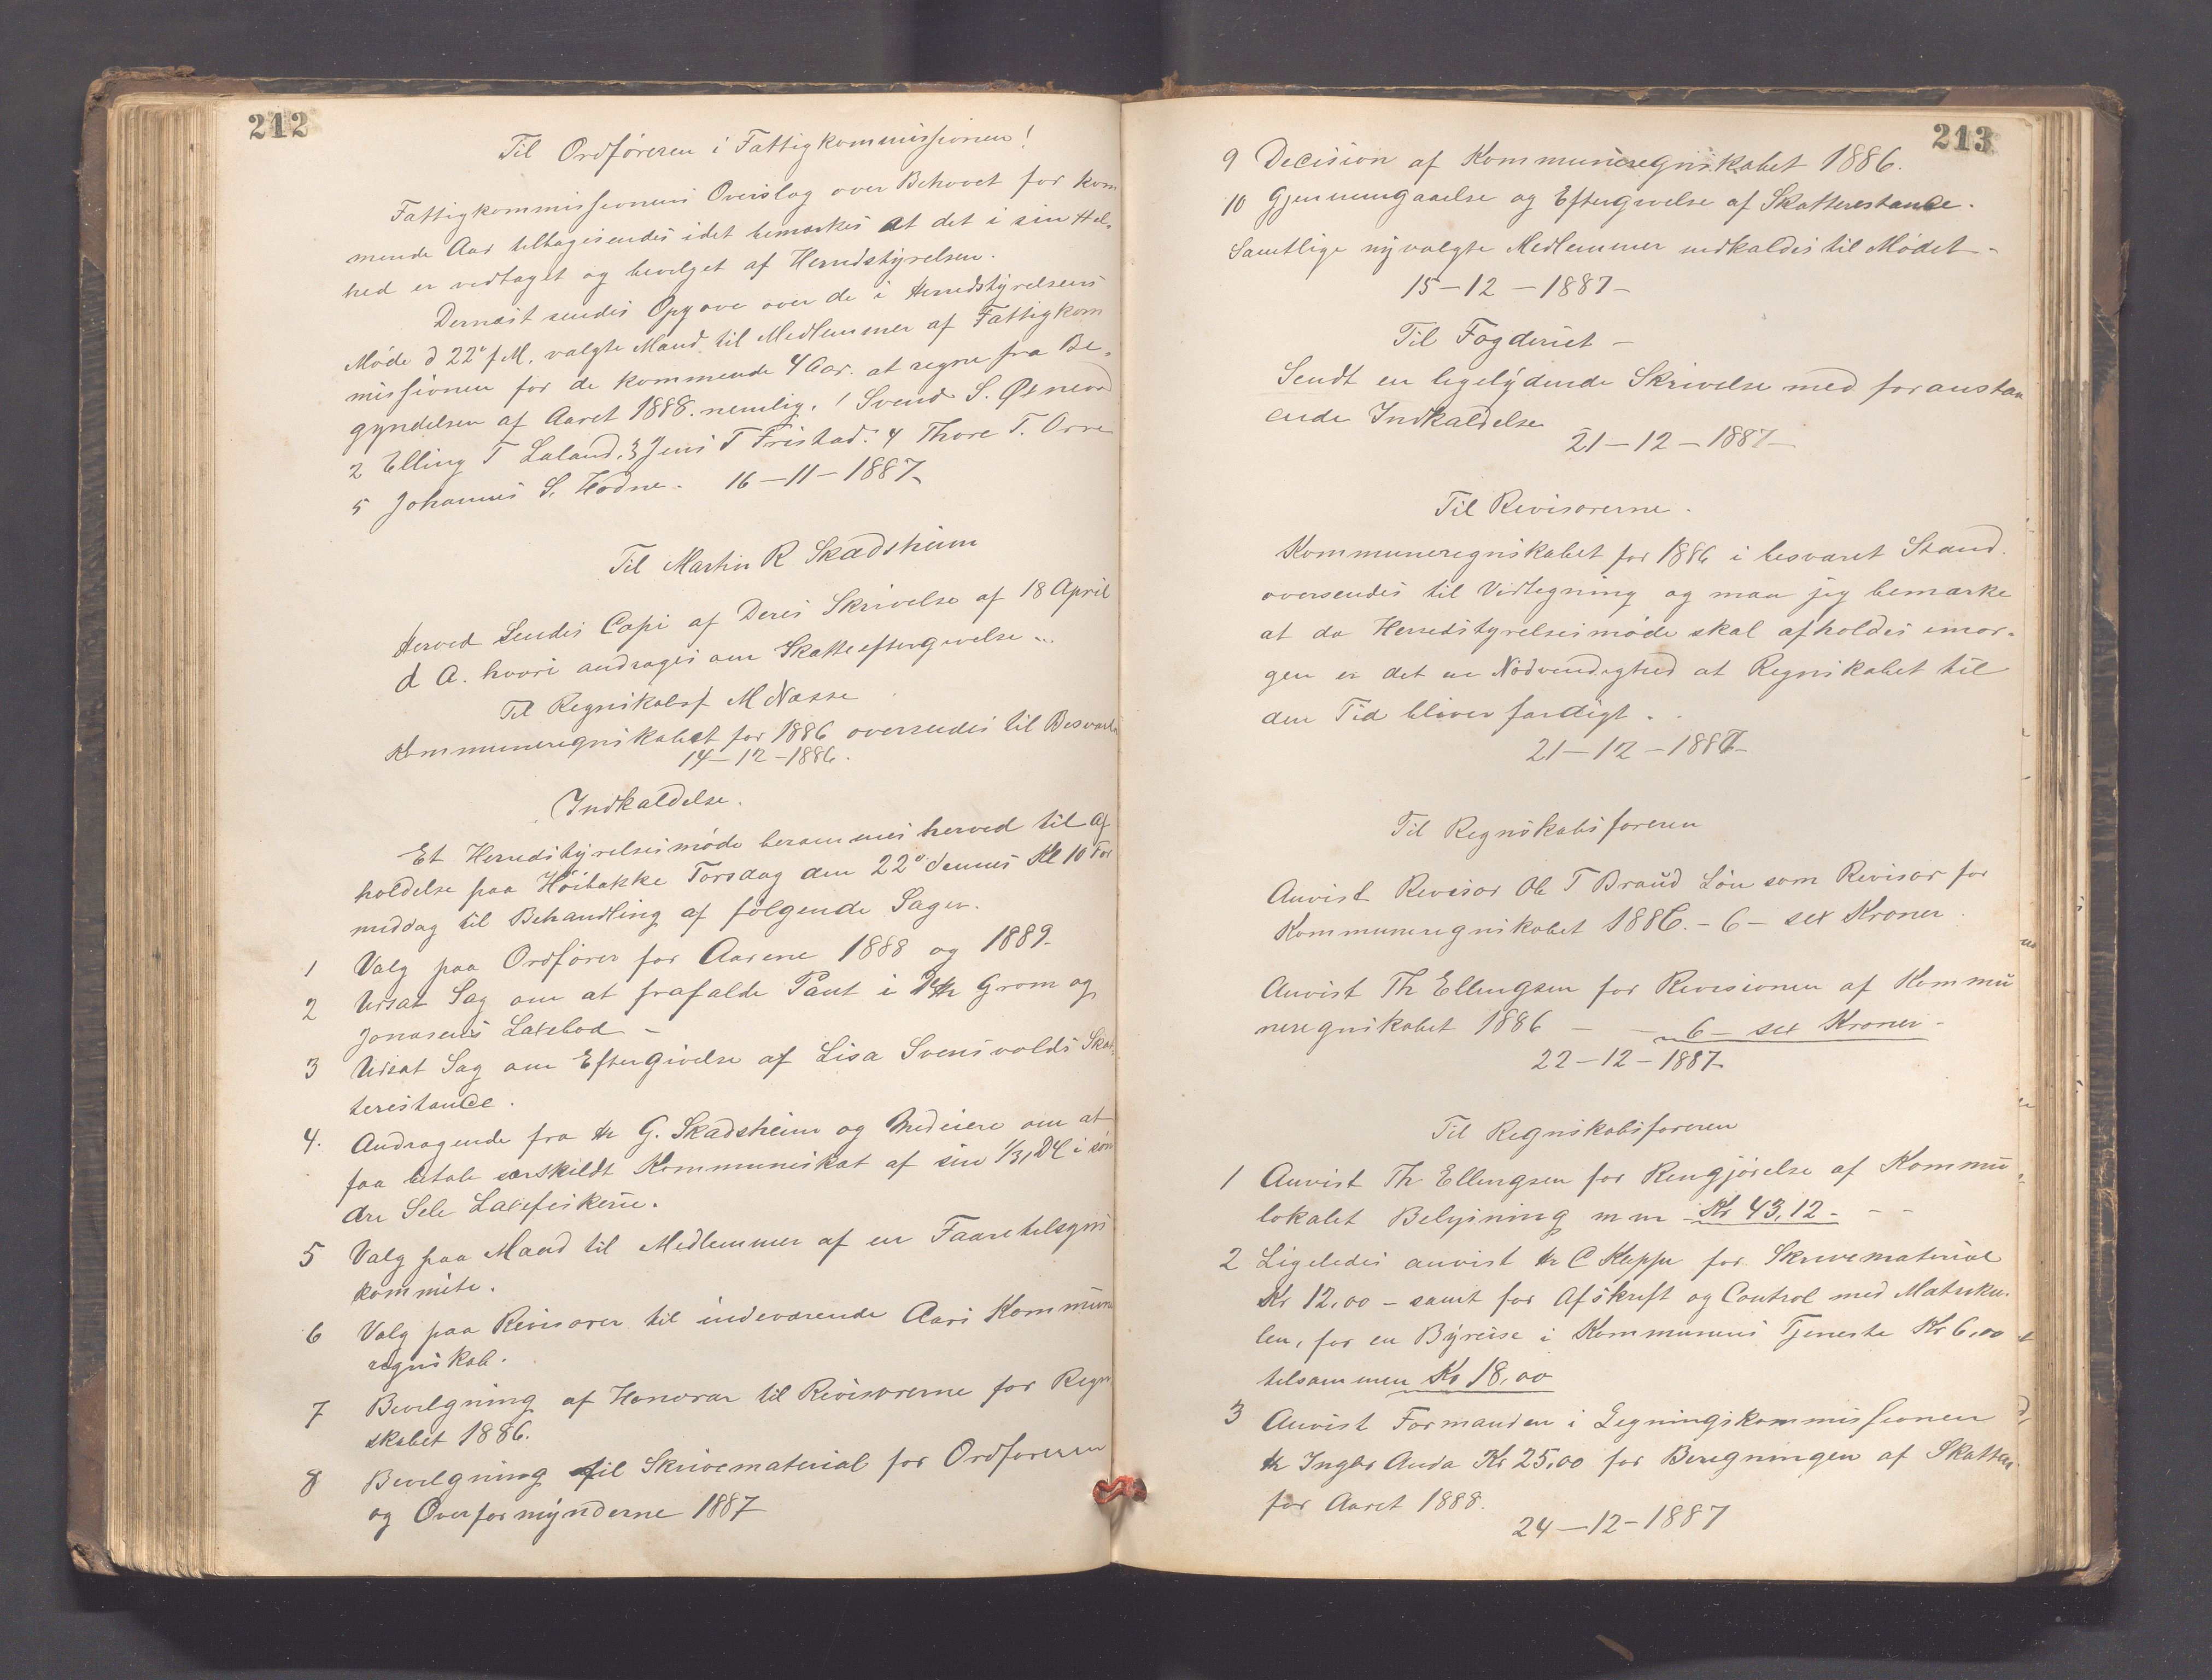 212
Til Ordføreren i Fattigkommissionen!
Fattigkommissionens Overslag over Behovet for kom
mende Aar tilbagesendes idet bemærkes at det i sin Hel-
hed er vedtaget og bevilget af Herredstyrelsen.
Dernæst sendes Opgave over de i Herredstyrelsens
Møde d 22º f M. valgte Mænd til Medlemmer af Fattigkom
missionen for de kommende 4 Aar. at regne fra Be-
gyndelsen af Aaret 1888. nemlig. 1 Svend S.
2 Elling T Laland. 3 Jens T Fristad. 4 Thore T. Orre
5 Johannes S. Hodne. 16-11-1887
Til Martin R Skadsheim
Herved Sendes Copi af Deres Skrivelse af 18 April
d A. hvori andrages om Skatteeftergivelse
Til Regnskabsf M Næsse
Kommuneregnskabet for 1886 oversendes til
14-12-1886.
Indkaldelse.
Et Herredstyrelsesmøde berammes herved til Af
holdelse paa Høibakke Torsdag den 22º dennes Kl 10 For
middag til Behandling af følgende Sager.
1 Valg paa Ordfører for Aarene 1888 og 1889-
2 Udsat Sag om at frafalde Pant i Grom og
Jonasens Laxebod -
3 Udsat Sag om Eftergivelse af Lisa Svensvolds Skat-
terestance.
4. Andragende fra Hr G. Skadsheim og Medeiere om at
faa betale særskildt Kommuneskat af sin i søn
dre Sele Laxefiskerie.
5 Valg paa Mænd til Medlemmer af en Faaretilsyns
komite.
6 Valg paa Revisorer til indeværende Aars Kommune
regnskab.
7 Bevilgning af Honorar til Revisorerne for Regn
skabet 1886.
8 Bevilgning til Skrivematerial for Ordføreren
og Overformynderne 1887
213
9 Decision af Kommuneregnskabet 1886.
10 Gjennemgaaelse og Eftergivelse af Skatterestance.
Samtlige nyvalgte Medlemmer indkaldes til Mødet-
15-12-1887-
Til Fogderiet -
Sendt en ligelydende Skrivelse med foranstaa
ende Indkaldelse
21-12-1887-
Til Revisorerne.
Kommuneregnskabet for 1886 i besvaret Stand.
oversendes til Vedtegning og maa jeg bemærke
at da Herredstyrelsesmøde skal afholdes imor-
gen er det en Nødvendighed at Regnskabet til
den Tid bliver færdigt.
21-12-1887-
Til Regnskabsføreren
Anvist Revisor Ole T Braud Løn som Revisor for
Kommuneregnskabet 1886.- 6 - sex Kroner
Anvist Th Ellingsen for Revisionen af Kommu
neregnskabet 1886 - - 6 - sex Kroner -
22-12-1887
Til Regnskabsføreren
1 Anvist Th Ellingsen for Rengjørelse af Kommu
lokalet Belysning m m Kr 43,12 - - -
2 Ligeledes anvist Hr C Keppe for Skrivematerial
Kr 12,00 - samt for Afskrift og Control med Matriku-
len, for en Byreise i Kommunens Tjeneste Kr 6,00
tilsammen Kr 18,00
3 Anvist Formanden i Ligningskommissionen
Hr Ingbr Anda Kr 25,00 for Beregningen af Skatten
for Aaret 1888.
24-12-1887